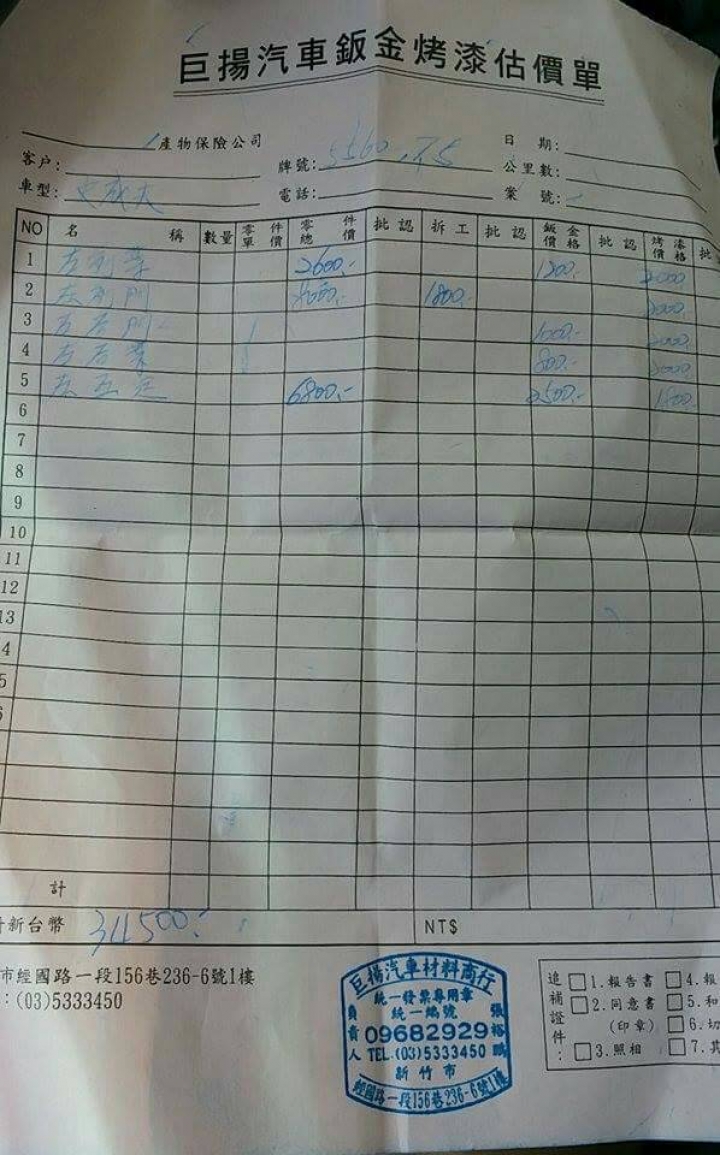 巨揚汽車鈑金烤漆估價單
產物保險公司 日 期:
客戶: 牌號: 5560 公里數:
車型: 電話: 案 號:
NO 名 稱 數量 零件單價 零件總價 批認 拆工 批認 鈑金價格 批認 烤漆價格 批
1 左前葉 2600.- 1200.- 2000
2 左前門 8000.- 1800.- 2000
3 左后門 1000.- 2000
4 左后葉 800.- 2000
5 6800.- 2500.- 1800
6
7
8
9
10
11
12
13
4
5
6
計
新台幣 34500.- NT$
市經國路一段156巷236-6號1樓
:(03)5333450
巨揚汽車材料商行
統一發票專用章
統一編號
負責人 張裕鵬
09682929
TEL.(03)5333450
新竹市
經國路一段156巷236-6號1樓
追補證件:
1.報告書 4.報
2.同意書 5.和
(印章) 6.切
3.照相 7.其